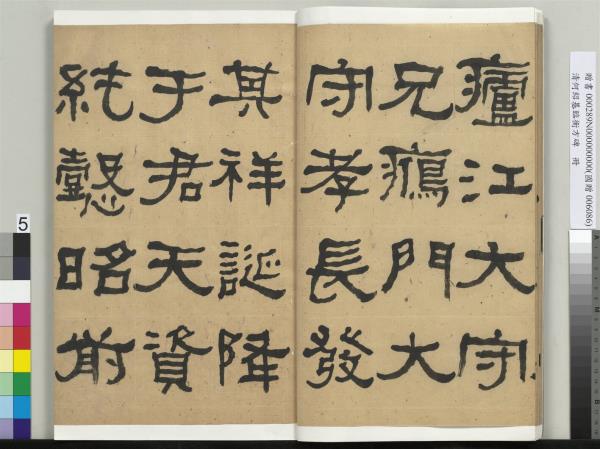 廬江大守
兄鴈門大
守孝長發
其祥誕降
于君天資
純懿昭前
贈書 000289N000000000(國贈 006086)
清何紹基臨衡方碑 冊
5